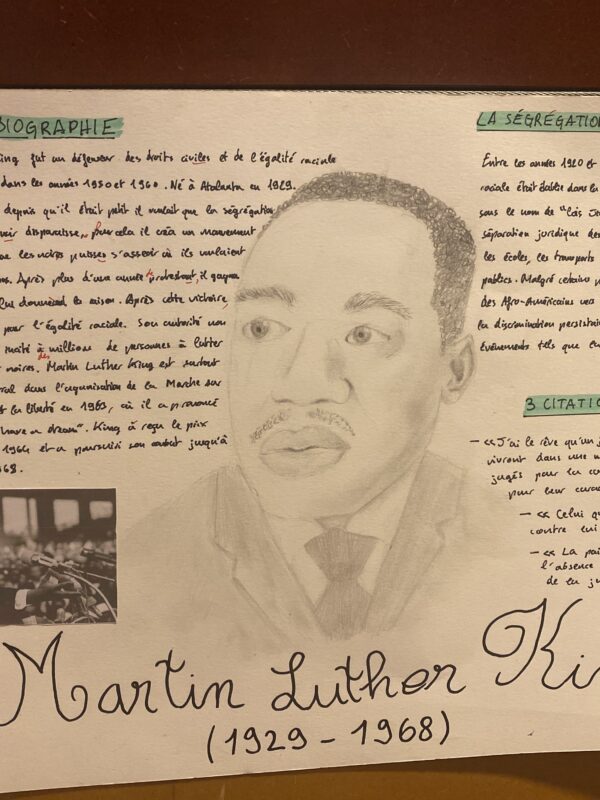 BIOGRAPHIE
ing fut un défenseur des droits civiles et de l'égalité raciale
dans les années 1950 et 1960. Né à Atalanta en 1929.
depuis qu'il était petit il voulait que la ségrégation
disparaisse, pour cela il créa un mouvement
les noirs puisses s'asseoir où ils voulaient
Après plus d'une année protestant, il gagna
lui donnèrent la raison. Après cette victoire,
pour l'égalité raciale. Son autorité non
incité à millions de personnes à lutter
noires. Martin Luther King est surtout
dans l'organisation de la Marche sur
la liberté en 1963, où il a prononcé
have a dream". King à reçu le prix
1964 et a poursuivi son combat jusqu'à
968.
LA SÉGRÉGATION
Entre les années 1920 et
raciale était établie dans
sous le nom de "lois
séparation juridique des
les écoles, les transports
publics. Malgré certains
des Afro-Américains vers
la discrimination persistai
événements tels que
3 CITATIO
- «J'ai le rêve qu'un
vivront dans une
jugés pour la
pour leur
- « Celui q
contre lui
- « La pai
l'absence
de la ju
Martin Luther Ki
(1929 - 1968)